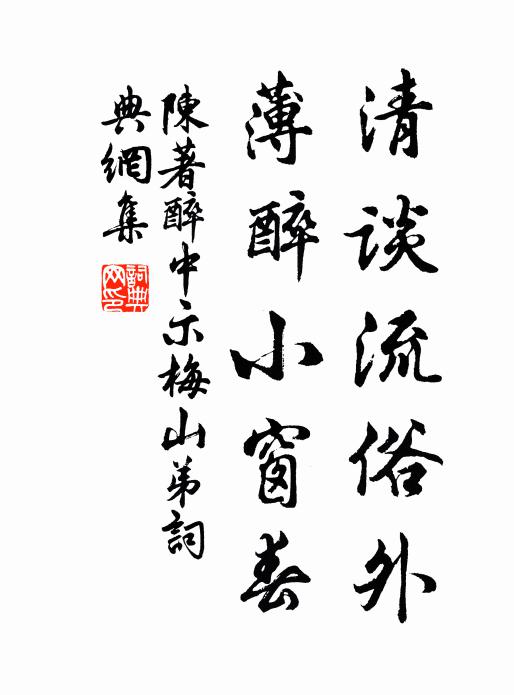 清談流俗外
薄醉小窗春
陳著醉中示梅山弟詞
典網集
詞典網印